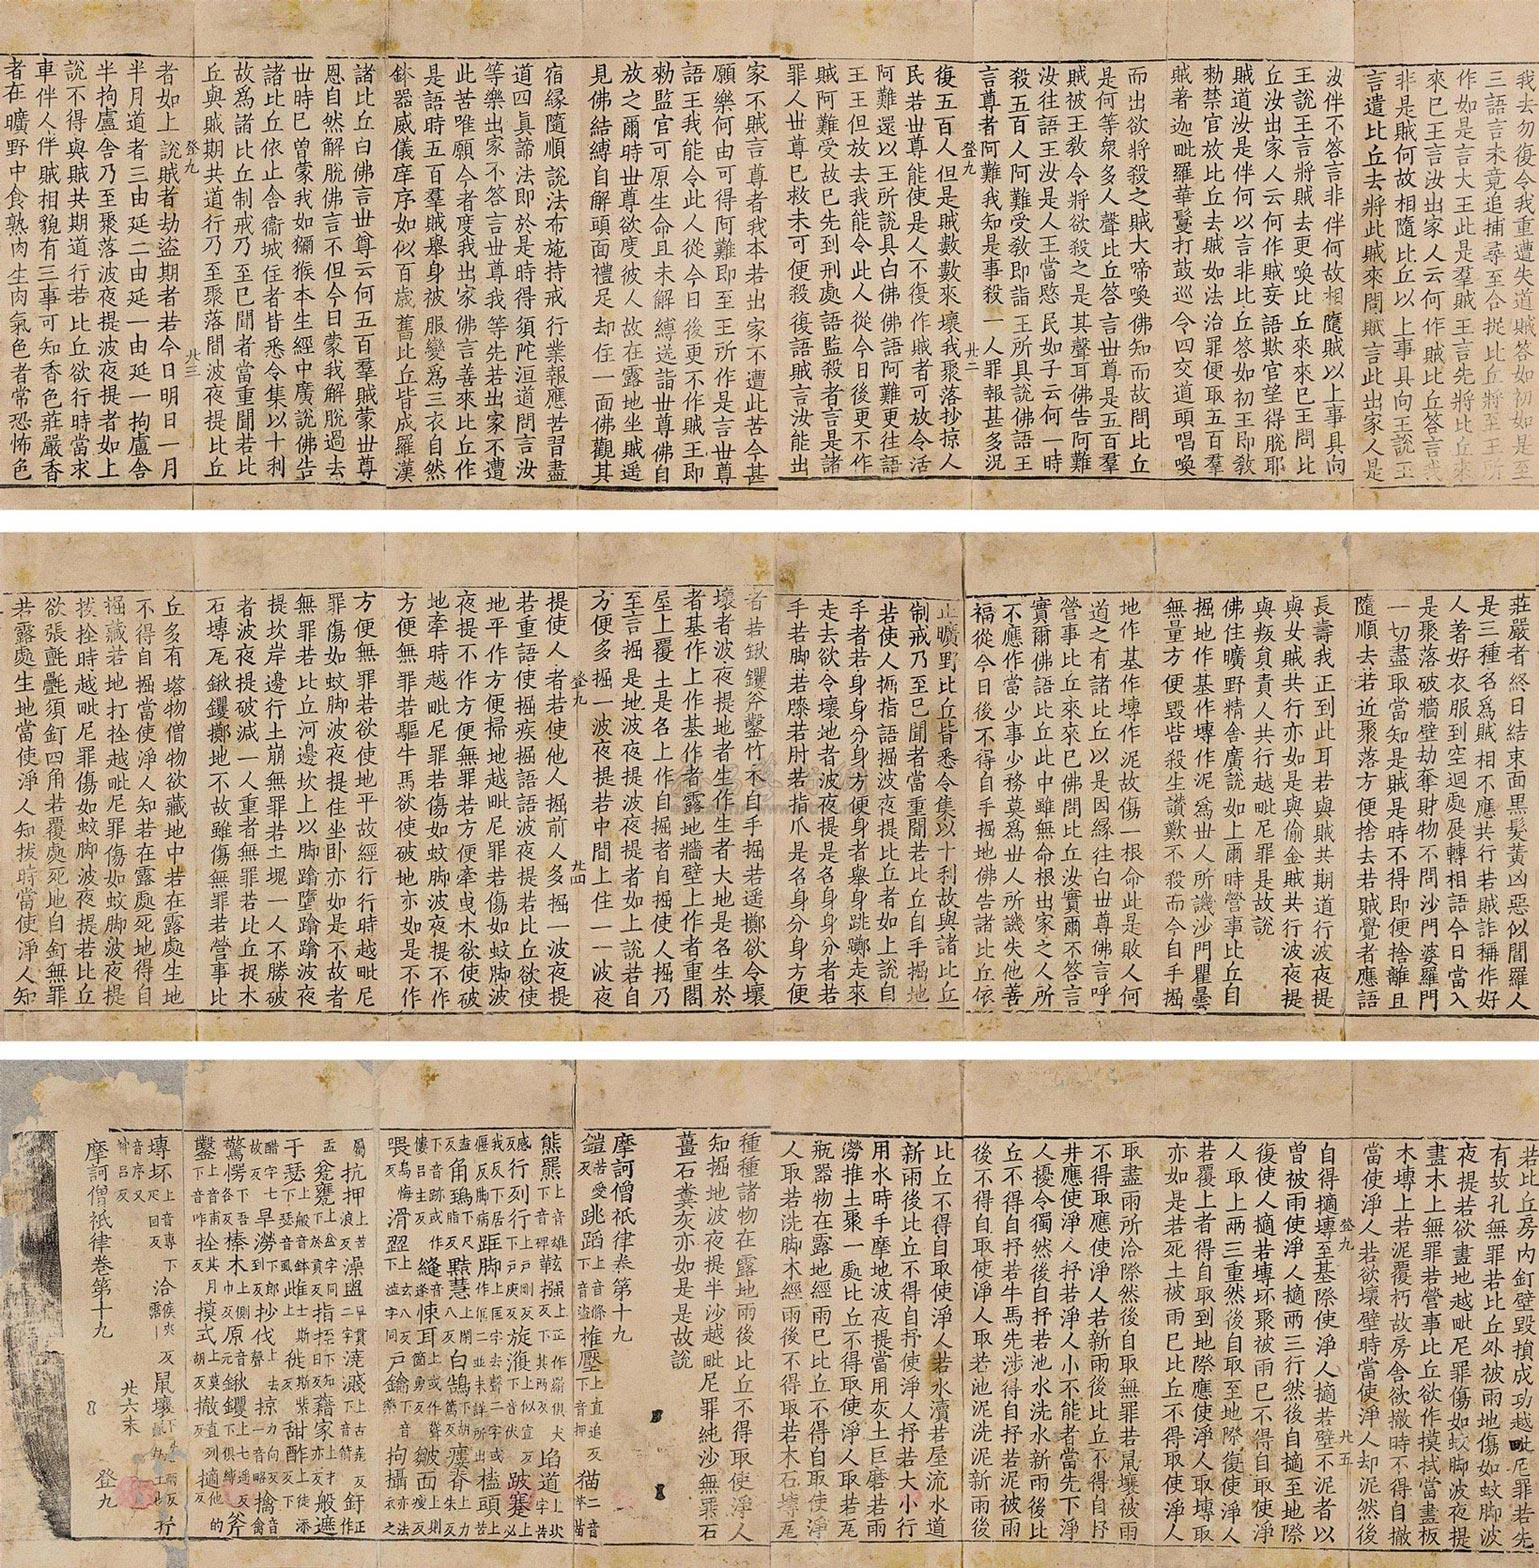 我去勿復令我重遭失道賊初如是至
三語言未竟追捕尋至合捉比丘將至王所
作如是言大王此是羣賊王言先將比丘來
來已王言汝出家人云何作賊比丘答言我
非是賊何故相隨比丘以上事具向王說王
言遣比丘去將此賊來問賊言此出家人是
汝伴不答言非伴何故相隨賊以上事具向
王說王言將賊去更喚比丘來來已王問比
丘汝出家人云何作賊妄語欺官望得脫耶
賊道汝是伴何以言非比丘答如初王即教
勑禁官放比丘去賊如法治罪便取五百羣
賊著迦毗羅華鬘打鼓巡令四交道頭唱喚
而出欲將殺之賊大啼喚佛知而故問比丘
是何等衆多人聲比丘答言世尊是五百羣
賊被王敎令將欲殺之是其聲耳佛告阿難
汝往語王汝是人王當愍民如子云何一時
殺五百人阿難受敎即詣王所具說佛語王
言尊者阿難我知是事殺一人罪報甚多況
登九
廿二
復五百人但是賊數數來壞我聚落抄掠人
民若世尊能使是人不復作賊者可放令活
阿難還以王所說具白佛佛語阿難更往語
王王但放去我能令此人從今日後更不作
賊阿難受故已先到刑處語監殺者言是諸
罪人世尊已救未可便殺復語賊言汝能出
家不賊言尊者我本若出家不遭此苦今甚
願樂何由可得阿難即至王所作是言世尊
語王我能令此人從今日後更不作賊王即
勑監官可原生命且未解縛送詣世尊佛自
放之爾時世尊欲度彼人故在露地坐賊遥
見佛結縛自解頭面禮足却住一面佛觀其
宿緣隨順說法布施持戒行業報應苦習盡
道四眞諦法即於是時得須陀洹道問言汝
等樂出家不答言世尊我等先若出家不遭
此苦唯願今者度我出家佛言善來比丘作
是語時五百羣賊舉身被服變爲三衣自然
鉢器威儀庠序如似百歲舊比丘皆成羅漢
諸比丘白佛言世尊云何五百羣賊蒙世尊
恩自然解脫佛言不但今日蒙我解脫過去
世時已曽蒙我如獼猴本生經中廣說佛告
諸比丘依止舎衞城住者皆悉令集以十利
故爲諸比丘制戒乃至已聞者當重聞若比
丘與賊期共道行乃至聚落間波夜提比丘
登九
廿三
者如上說賊者劫盜期者若今日明日一月
半月道者三由延二由延一由延一拘盧舎
半拘盧舎乃至聚落波夜提波夜提者如上
說不得與賊共期道行若比丘欲行時當求
車伴人伴賊相貌有三事可知香色莊嚴香
者在曠野中食熟肉生肉氣色者常恐怖色
莊嚴者終日結束面黑髪黃凶惡似閻羅人
是三種名爲賊相不應共行若賊詐稱作好
人著好衣服到空迴處展轉相語今日當入
是聚落破牆壁劫奪財物不問沙門婆羅門
一切盡取當知是賊是時不得即便捨離且
隨順去若近聚落方便捨去若賊覺者應語
長壽我正到此耳若與賊共期道行波夜提
與女賊共行亦如是與偷金賊共行波夜提
與叛負責人共行越毗尼罪是故說
佛住曠野精舎廣說如上爾時營事比丘自
掘地作基作塼作泥爲世人所譏沙門瞿曇
無量方便毀呰殺生讃歎不殺而今自手掘
地作基作塼作泥故傷一根命此是敗人何
道之有諸比丘以是因緣往白世尊佛言呼
營事比丘來來已佛問比丘汝實爾不答言
實爾佛語比丘此中雖無命根出家之人所
不應作當少事少務莫爲世人所譏失他善
福從今日後不得自手掘地佛告諸比丘依
止曠野比丘皆悉令集以十利故與諸比丘
制戒乃至已聞者當重聞若比丘自手掘地
若使人掘指語掘波夜提比丘者如上說自
手者若身身分身方便身者舉身跳躑走來
走去欲令壞地者波夜提是名身身分者若
手若脚若膝若肘若指爪是名身分身方便
者若鍬钁斧鑿竹木自手掘若遥擲欲令壞
壞者波夜提地者生作生者大地是名生於
者基作上作基作者露地牆壁上作者重閣
屋上覆土是名上作自掘者自掘使人掘乃
至言掘是地波夜提波夜提者如上說若自
方便多掘一波夜提若中間上住一一波夜
登九
廿四
提使人者若使他人掘前人多掘一波夜提
若重語使掘疾掘語語波夜提若比丘欲使
地平作方便掃地越毗尼罪若傷如蚊脚波
夜提不作方便無罪若方便牽曳木欲使破
地牽時越毗尼罪若傷如蚊脚波夜提不作
方便無罪若驅牛馬欲使破地亦如是不作
方便無罪若欲使地平故經行行時越毗尼
罪傷如蚊脚波夜提住坐卧亦如是不故者
無罪若比丘河邊坎上以脚踰墮踰踰波夜
提坎岸邊行土崩無罪若土塊一人不勝破
者波夜提破減一人重者無罪若比丘捉木
石塼瓦鍬钁擲地不故雖傷無罪若營事比
丘多有塔物僧物欲藏地中若在露處生地
不得自掘當使淨人知若在露處死地得自
掘藏若地打栓越毗尼罪傷如蚊脚波夜提
拔栓時越毗尼罪傷如蚊脚波夜提若比丘
欲張氈氍須釘四角若覆處死地自釘無罪
若露處生地當使淨人知拔時當使淨人知
若比丘房內釘壁毀損成功越毗尼罪若先
有故孔無罪若比丘外被雨地傷如蚊脚波
夜提若欲畫地越毗尼罪傷如蚊脚波夜提
畫木上無罪若營事比丘欲作摸拭當畫板
木塼上若泥覆朽故房舎欲撤時不得自撤
當使淨人若欲壞壁時當使淨人却泥然後
登九
廿五
自得摘塼至基際使淨人摘若壁不泥者以
曽被雨使淨人摘兩三行然後自摘至地際
復使人摘若塼坏聚被雨已不得自取使淨
人取上兩三重然後自取至地際復使淨人
若覆上者得自取到地際應使淨人取塼取
亦如是若死土被雨已比丘不得自取使淨人
取盡雨所洽際然後自取無罪若鼠壤被雨
不得取應使淨人若新雨後比丘不得自抒
井應使淨人抒若淨人小不能者當先下淨
人擾令獨然後自抒若池水洗水新雨後比
丘不得自抒若牛馬先涉得自抒若泥被雨
後不得自取使淨人取若池泥洗泥新雨後
比丘不得自取使淨人若水瀆若屋流水道
新雨後比丘不得自抒使淨人抒若大小行
用水時手摩地波夜提當用灰土巨磨若若
澇推土聚一處比丘不得取使淨人取若瓦
瓶器物在露地經雨已比丘不得自取使淨
人取若洗脚木經雨後不得取若木石塼瓦
種種諸物在露地雨後比丘不得取使淨人
知掘地波夜提半沙越毗尼罪純沙無罪石
薑石糞灰亦如是是故說
摩訶僧祇律卷第十九
摩訶僧祇律卷第十九
廿六末
登九